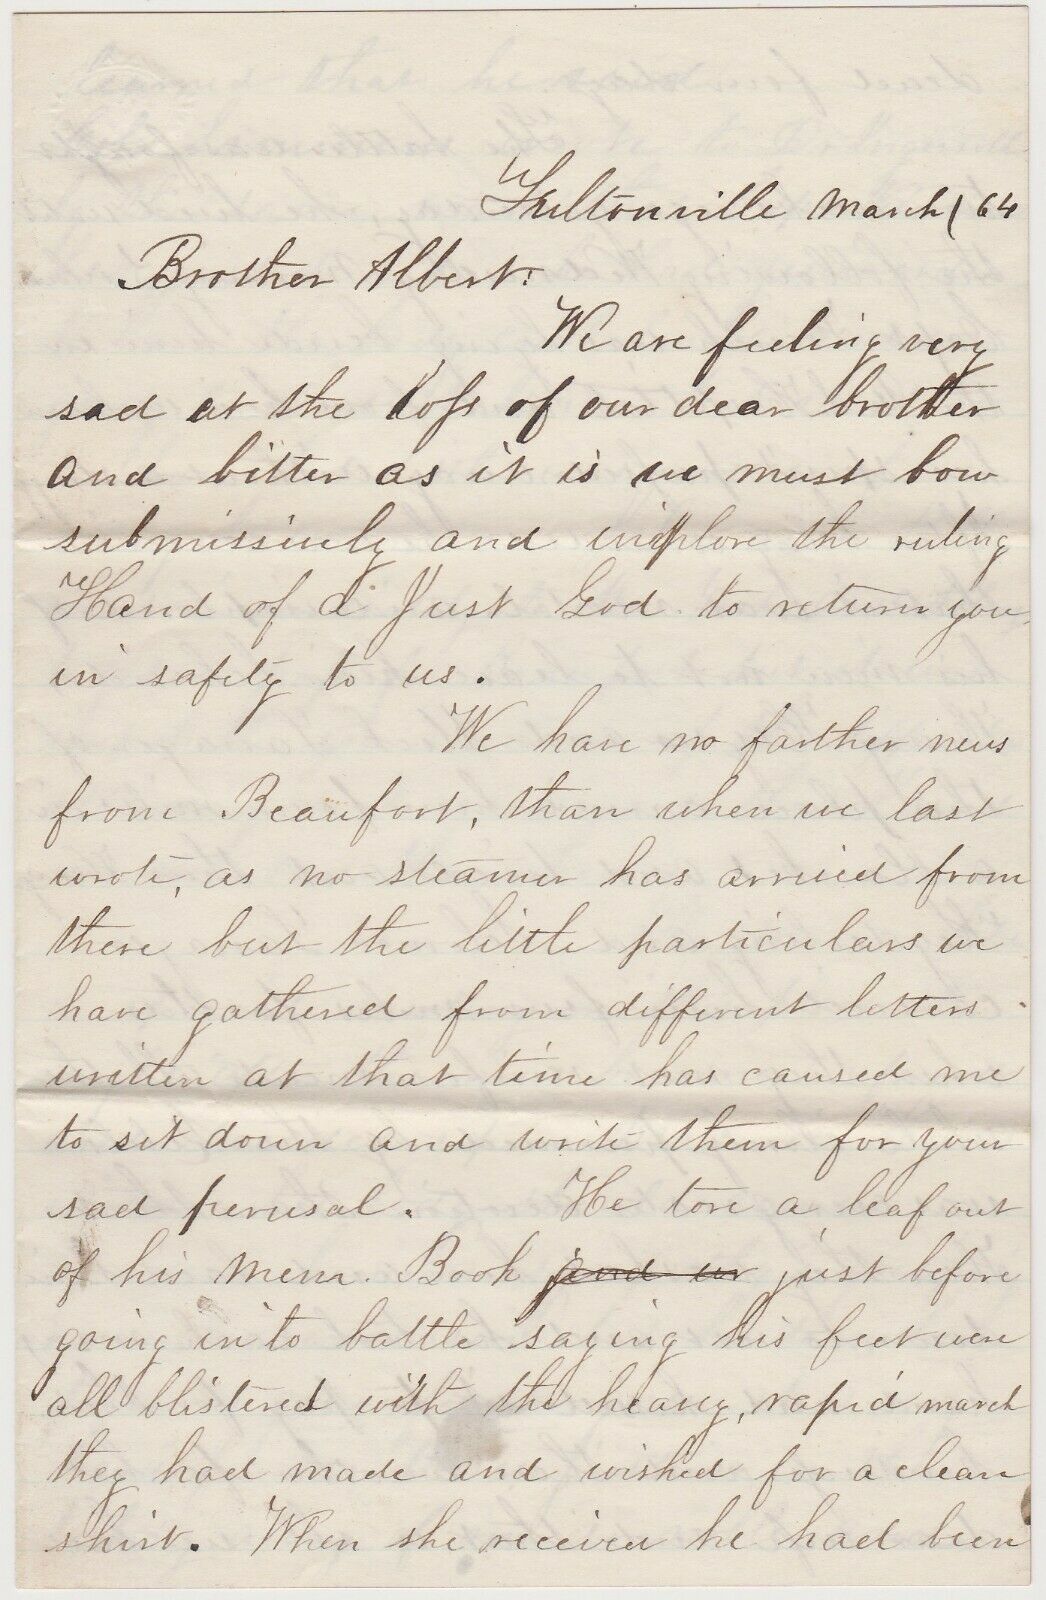 Fultonville March / 64
Brother Albert:
We are feeling very
sad at the loss of our dear brother
and bitter as it is we must bow
submissively and implore the ruling
Hand of a Just God to return you
in safety to us.
We have no farther news
from Beaufort, than when we last
wrote, as no steamer has arrived from
there but the little particulars we
have gathered from different letters
written at that time has caused me
to sit down and write them for your
sad perusal. He tore a leaf out
of his Mem. Book and wr just before
going into battle saying his feet were
all blistered with the heavy, rapid march
they had made and wished for a clean
shirt. When she received he had been